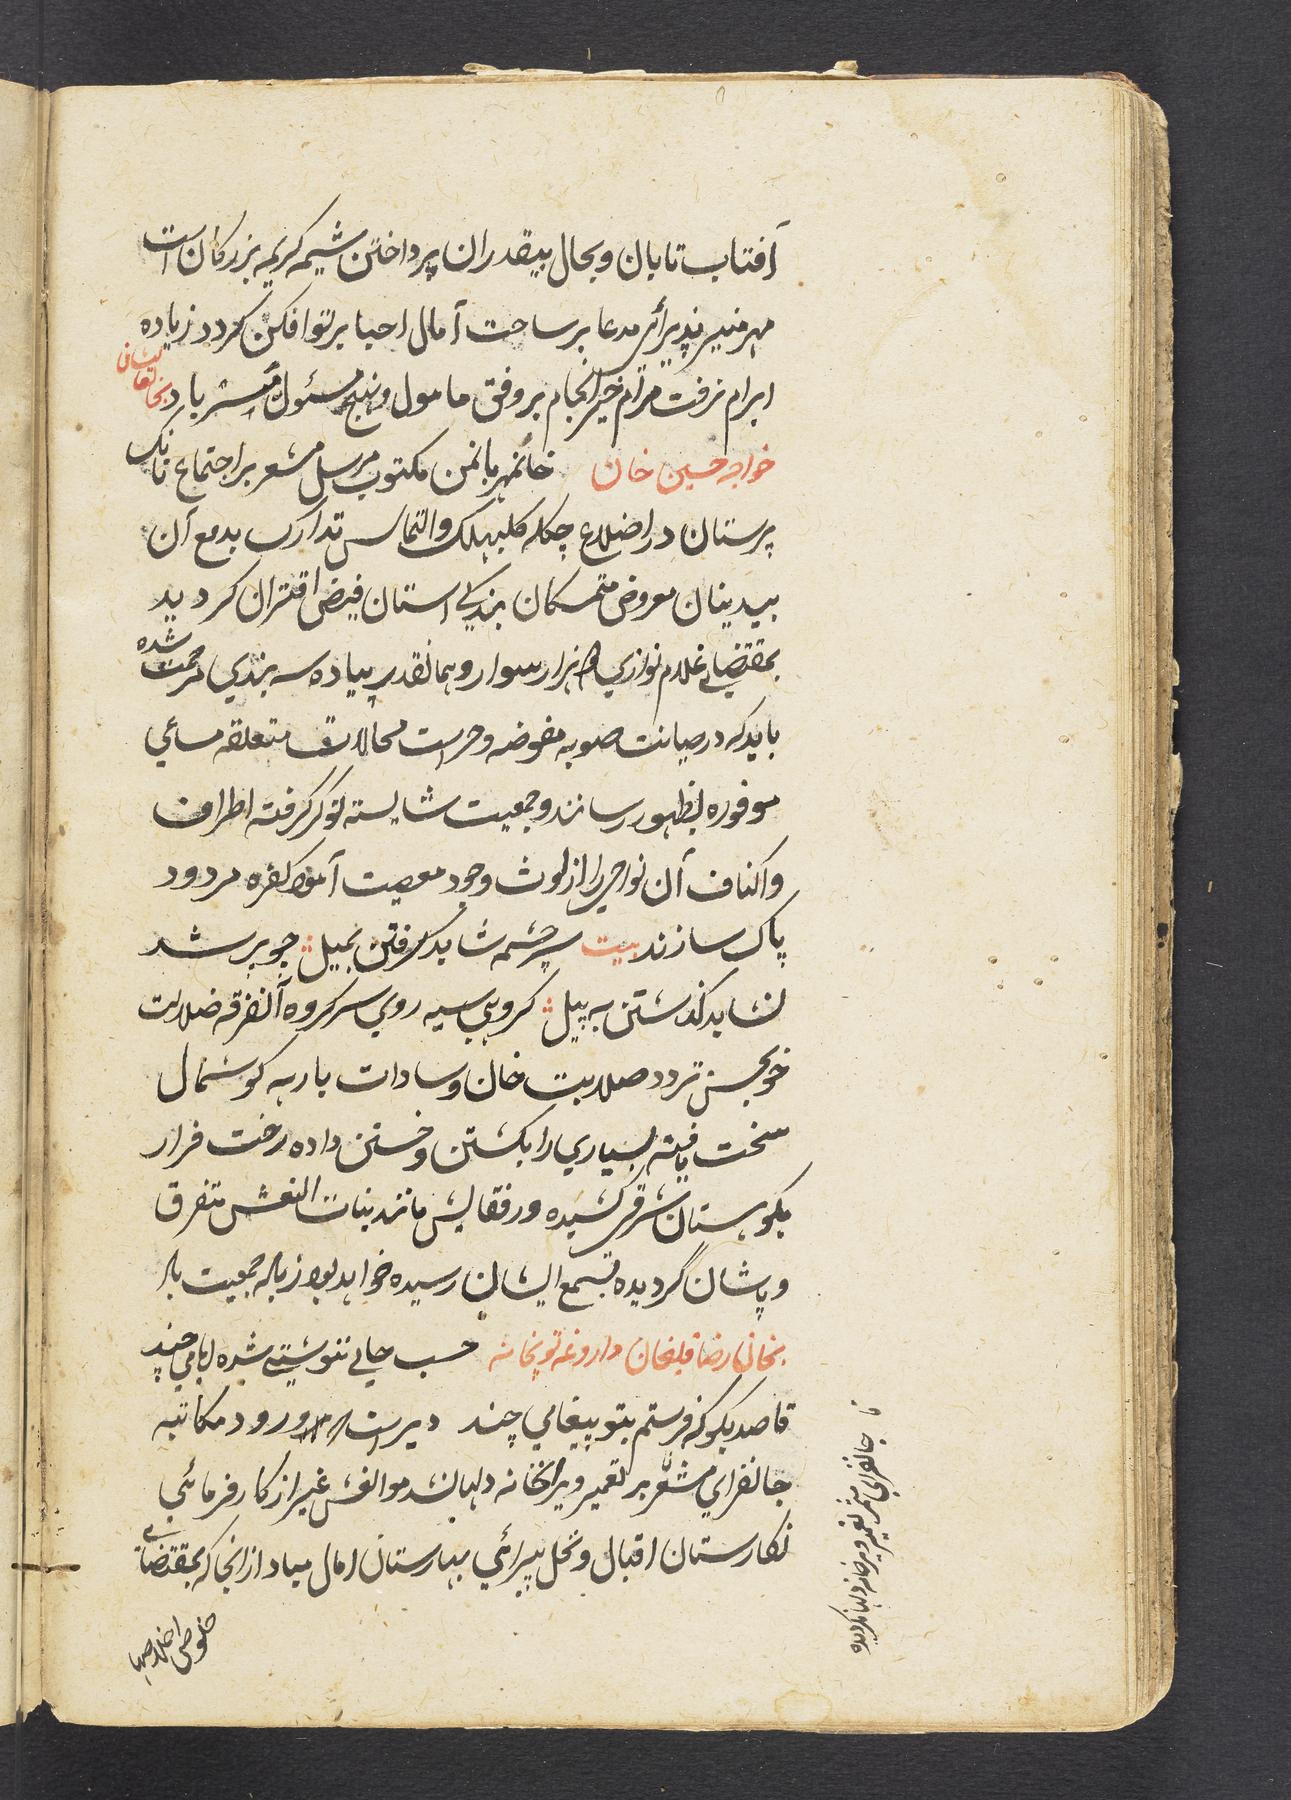 آفتاب تابان و بحال بیقدران پرداختن شیمه کریمه بزرکان است
مهر منیر پذیرائی مدعا بر ساحت آمال احبا پرتو افکن کردد زیاده
ابرام نرفت مرام خیر انجام بر وفق مامول و نهج مسئول باد بخانعالیشان
خواجه حسین خان خانمهربانمن مکتوب مرسل مشعر بر اجتماع نانک
پرستان در اضلاع چکله والتماس تدارک بدمع آن
بیدینان معروض متمسکان بندکی استان فیض اقتران کردید
بمقتضای غلام نوازی هزار سوار و همانقدر پیاده سه بندی مرحمت شده
باید که در صیانت صوبه مفوضه و حراست محالات متعلقه مساعی
موفوره بظهور رسانند و جمعیت شایسته نوکر کرفته اطراف
و اکناف آن نواحی را از لوث وجود معصیت آمود کفره مردود
پاک سازند بیت سر چشمه شاید کرفتن بمیل چو پر شد
نشاید کذشتن به پیل کروهی سیه روی سر کروه آنفرقه ضلالت
خو بحسن تردد صلابت خان و سادات بارهه کوشمال
سخت یافته بسیاری را بکشتن و خستن داده رخت فرار
بکوهستان شرقی کشیده و رفقایش مانند بنات النعش متفرق
و پاشان گردیده بسمع ایشان رسیده خواهد بود زیاده جمعیت باد
بخان رضا قلیخان داروغه توپخانه حسب حالی ننوشتی شد ایامی چند
قاصد بکو که فرستم بتو پیغامی چند دیرست ورود مکاتبه
جانفزای مشعر بر تعمیر ویرانخانه دلها نشد موانعش غیر از کار فرمائی
نکارستان اقبال و نخل پیرائی بهارستان امال مباد از انجا که بمقتضای
خلوص اخلاصها
جانفزای مشعر تعمیر ویرانخانه دلها نکردیده